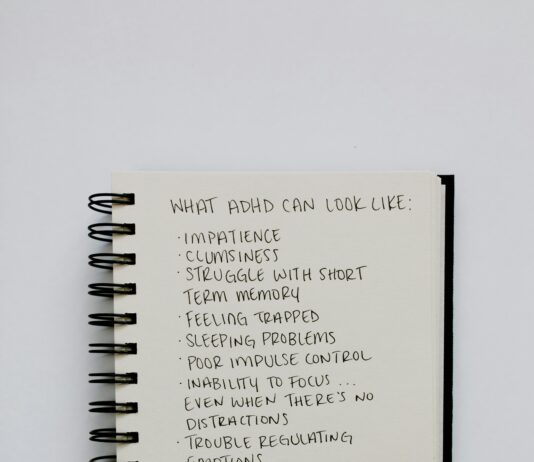 WHAT ADHD CAN LOOK LIKE:
· IMPATIENCE
· CLUMSINESS
· STRUGGLE WITH SHORT
TERM MEMORY
· FEELING TRAPPED
· SLEEPING PROBLEMS
· POOR IMPULSE CONTROL
· INABILITY TO FOCUS ...
EVEN WHEN THERE'S NO
DISTRACTIONS
· TROUBLE REGULATING
EMOTIONS